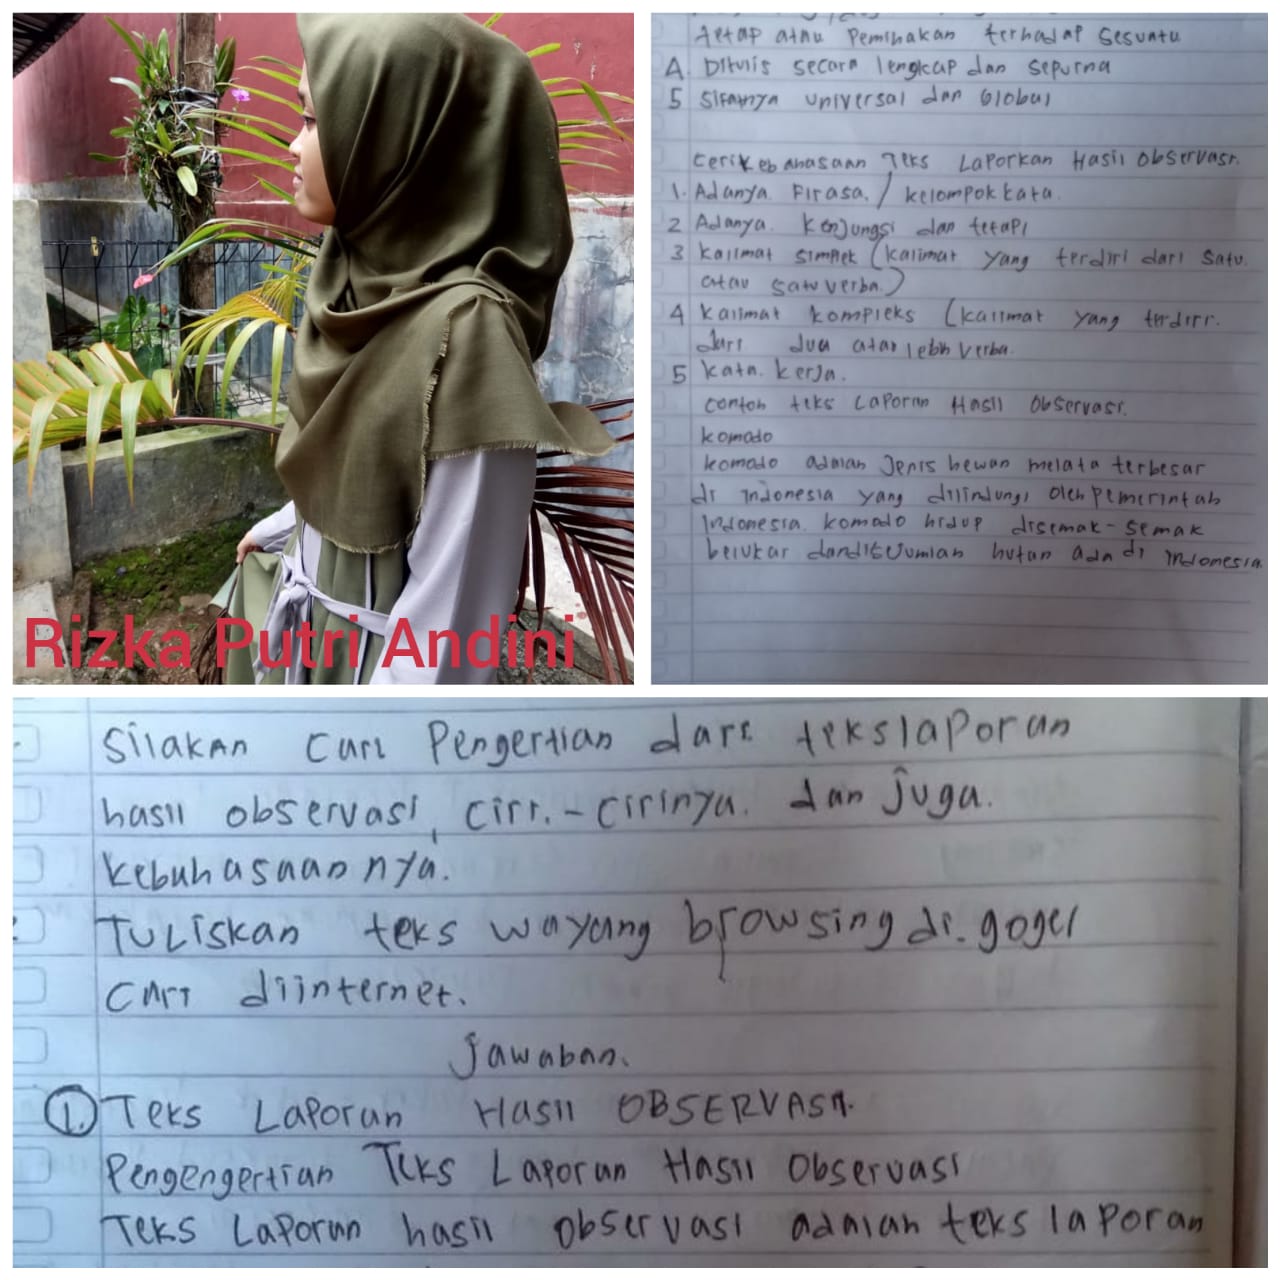 Rizka Putri Andini
tetap atau Pemihakan terhadap Sesuatu
4. Ditulis secara lengkap dan sepurna
5 Sifatnya universal dan Global
Cerikebahasaan Teks Laporkan Hasil Observasi.
1. Adanya Firasa. / kelompok kata.
2 Adanya. Konjungsi dan tetapi
3 kalimat simplek (kalimat yang terdiri dari satu.
atau satu verba.)
4 kalimat kompleks (kalimat yang terdiri.
dari dua atau lebih verba.
5 kata. kerja.
contoh teks Laporan Hasil Observasi.
komodo
komodo adalah Jenis hewan melata terbesar
di Indonesia yang dilindungi oleh pemerintah
Indonesia. komodo hidup disemak-semak
belukar dan hutan ada di Indonesia.
Silakan Cari Pengertian dari tekslaporan
hasil observasi, ciri.-cirinya. dan juga.
kebuhasaannya.
Tuliskan teks wayang browsing di. gogel
Cari diinternet.
Jawaban.
1. Teks Laporan Hasil OBSERVASI.
Pengengertian Teks Laporan Hasil Observasi
Teks Laporan hasil observasi adalah teks laporan